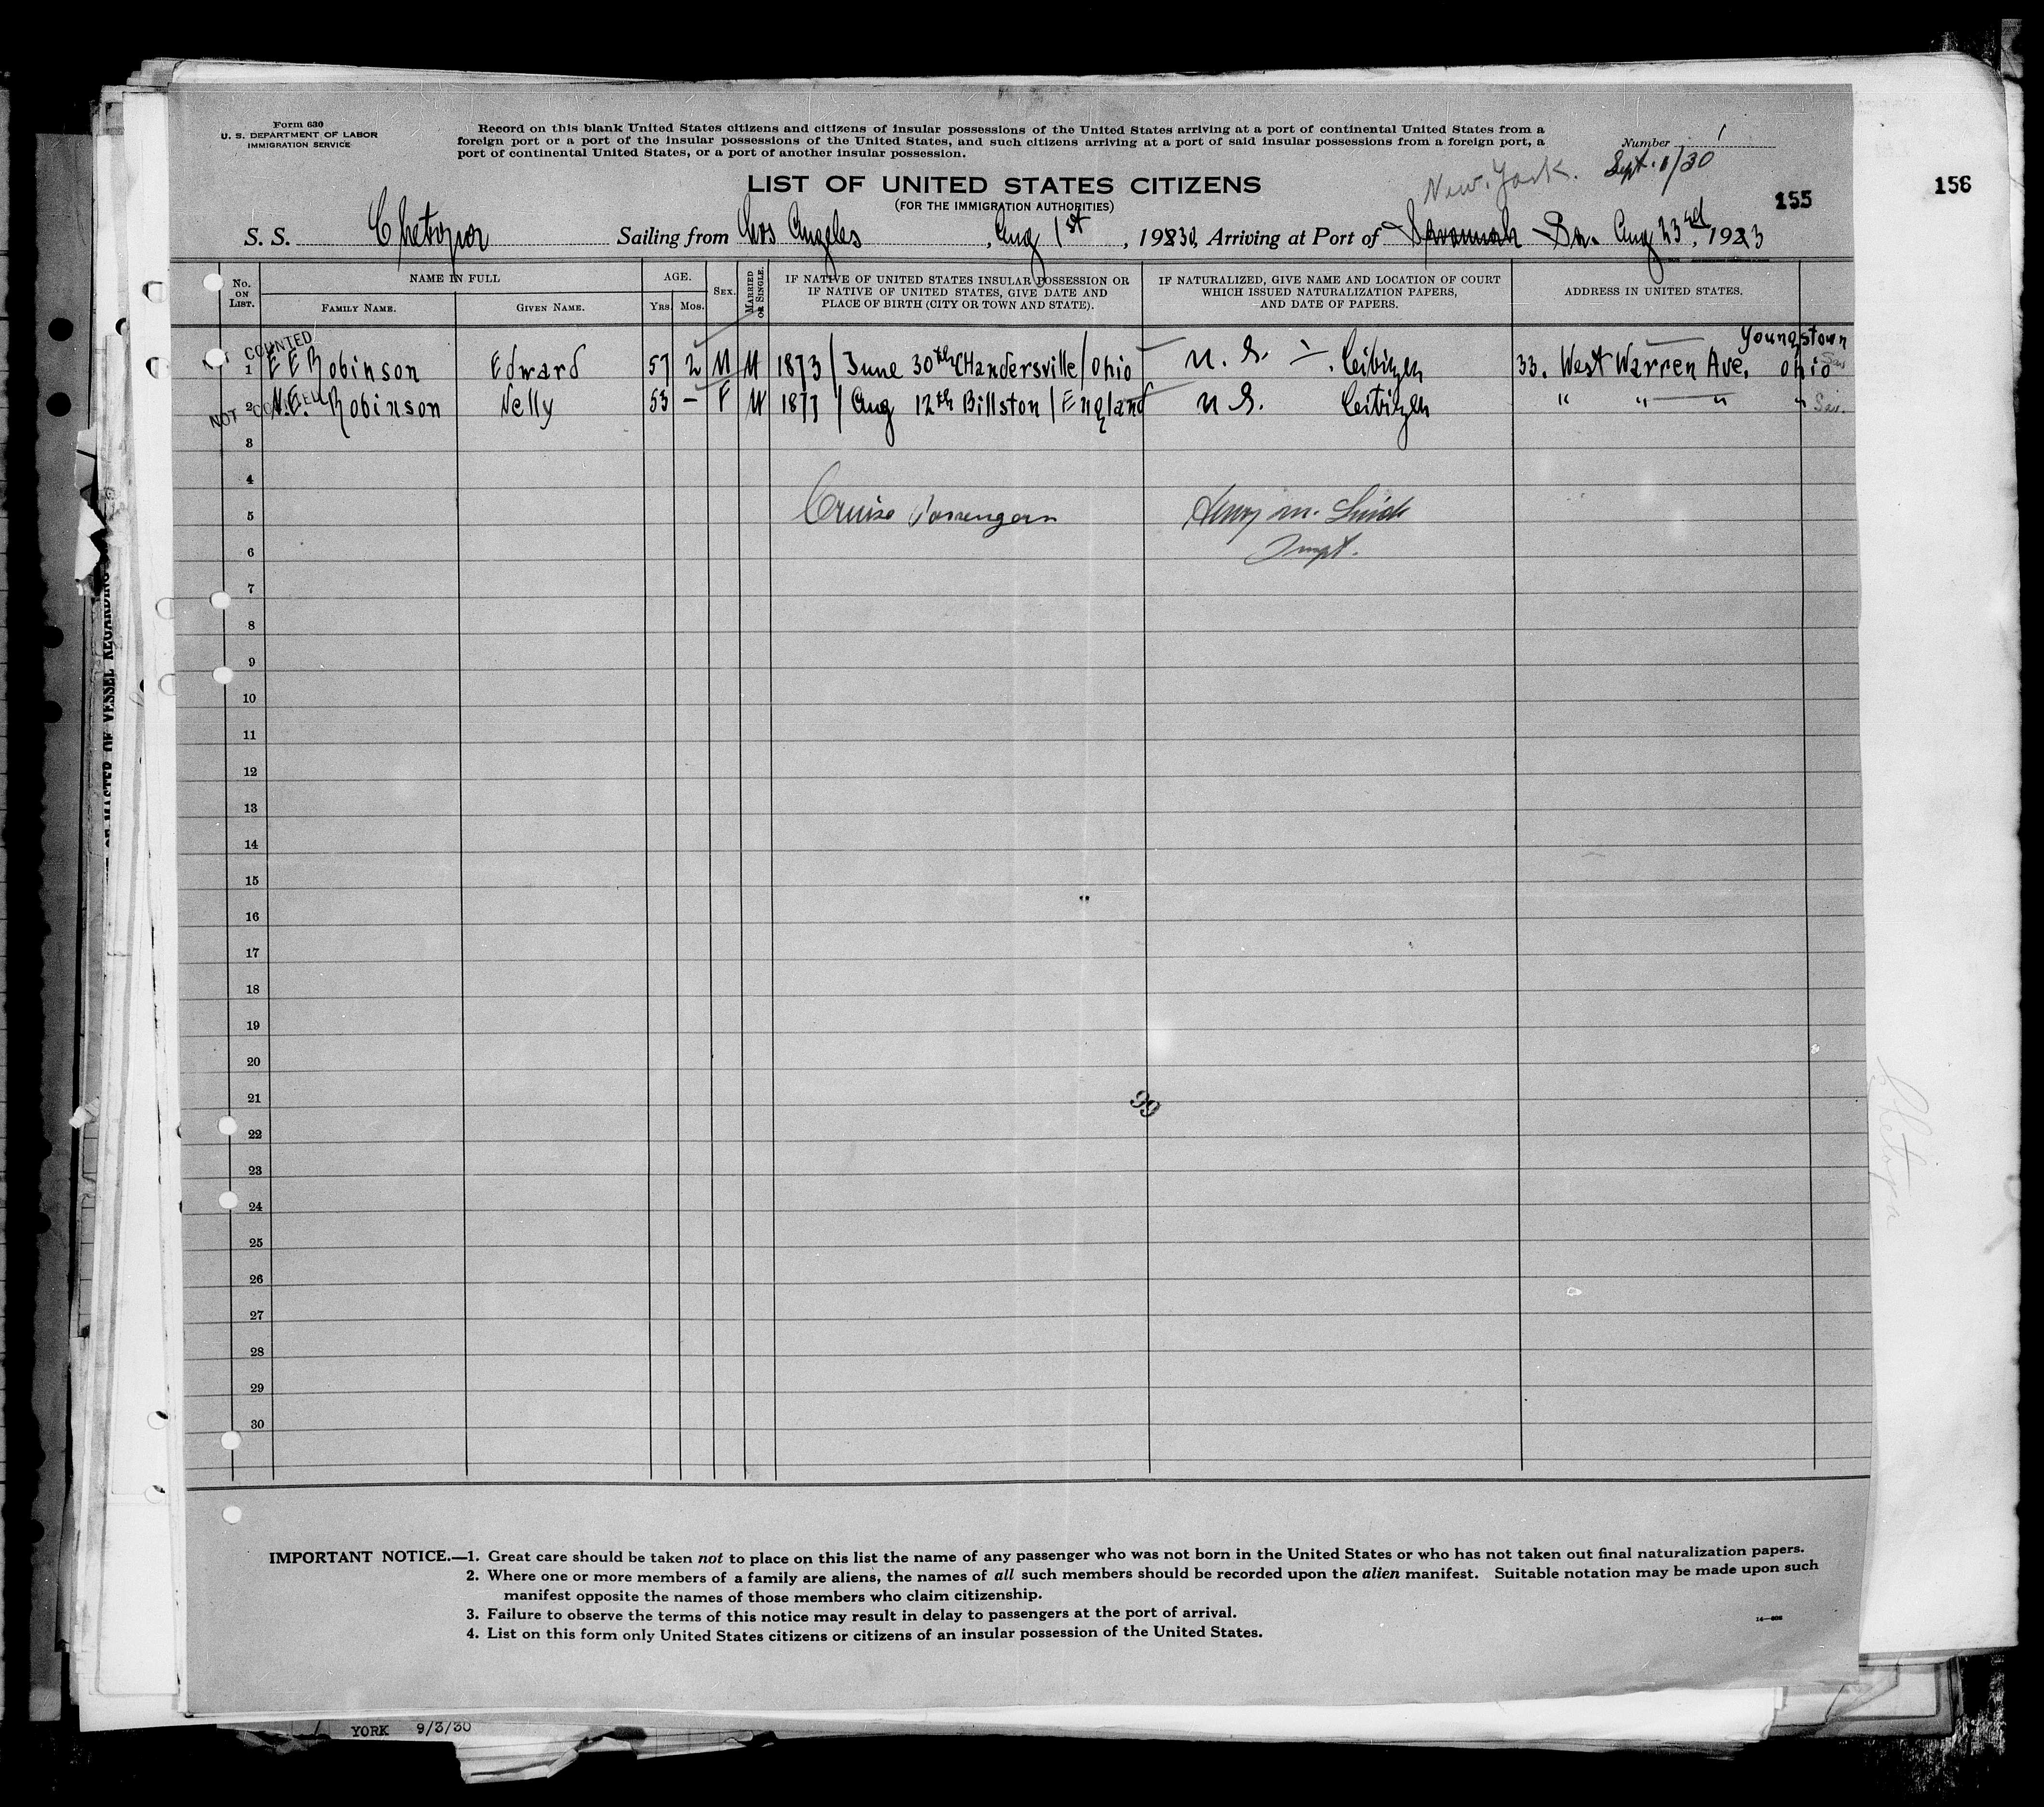 Form 630
U. S. DEPARTMENT OF LABOR
IMMIGRATION SERVICE
Record on this blank United States citizens and citizens of insular possessions of the United States arriving at a port of continental United States from a
foreign port or a port of the insular possessions of the United States, and such citizens arriving at a port of said insular possessions from a foreign port, a
port of continental United States, or a port of another insular possession.
Number 1
LIST OF UNITED STATES CITIZENS
(FOR THE IMMIGRATION AUTHORITIES)
New York. Sept. 1/30
155
156
S. S. Chetopa Sailing from Los Angeles, Aug 1st, 1930, Arriving at Port of Savannah Ga. Aug 23rd, 1923
No. ON LIST. NAME IN FULL AGE. SEX. MARRIED OR SINGLE. IF NATIVE OF UNITED STATES INSULAR POSSESSION OR IF NATIVE OF UNITED STATES, GIVE DATE AND PLACE OF BIRTH (CITY OR TOWN AND STATE). IF NATURALIZED, GIVE NAME AND LOCATION OF COURT WHICH ISSUED NATURALIZATION PAPERS, AND DATE OF PAPERS. ADDRESS IN UNITED STATES.
FAMILY NAME. GIVEN NAME. Yrs. Mos.
COUNTED
Youngstown
1 E E Robinson Edward 57 2 M M 1873 / June 30th Chandersville / Ohio U. S. Citizen 33. West Warren Ave. Ohio Sav.
NOT COUNTED
2 N. E. Robinson Nelly 53 – F M 1877 / Aug 12th Billston / England U S. Citizen " " " " Sav.
3
4
5 Cruise Passengers Henry M.
6 Inspt.
7
8
9
10
11
12
13
14
15
16
17
18
19
20
21
99
22
23
24
25
26
27
28
29
30
Chetopa
IMPORTANT NOTICE.—1. Great care should be taken not to place on this list the name of any passenger who was not born in the United States or who has not taken out final naturalization papers.
2. Where one or more members of a family are aliens, the names of all such members should be recorded upon the alien manifest. Suitable notation may be made upon such
manifest opposite the names of those members who claim citizenship.
3. Failure to observe the terms of this notice may result in delay to passengers at the port of arrival.
4. List on this form only United States citizens or citizens of an insular possession of the United States.
14—808
YORK 9/3/30
MASTER OF VESSEL REGARDING